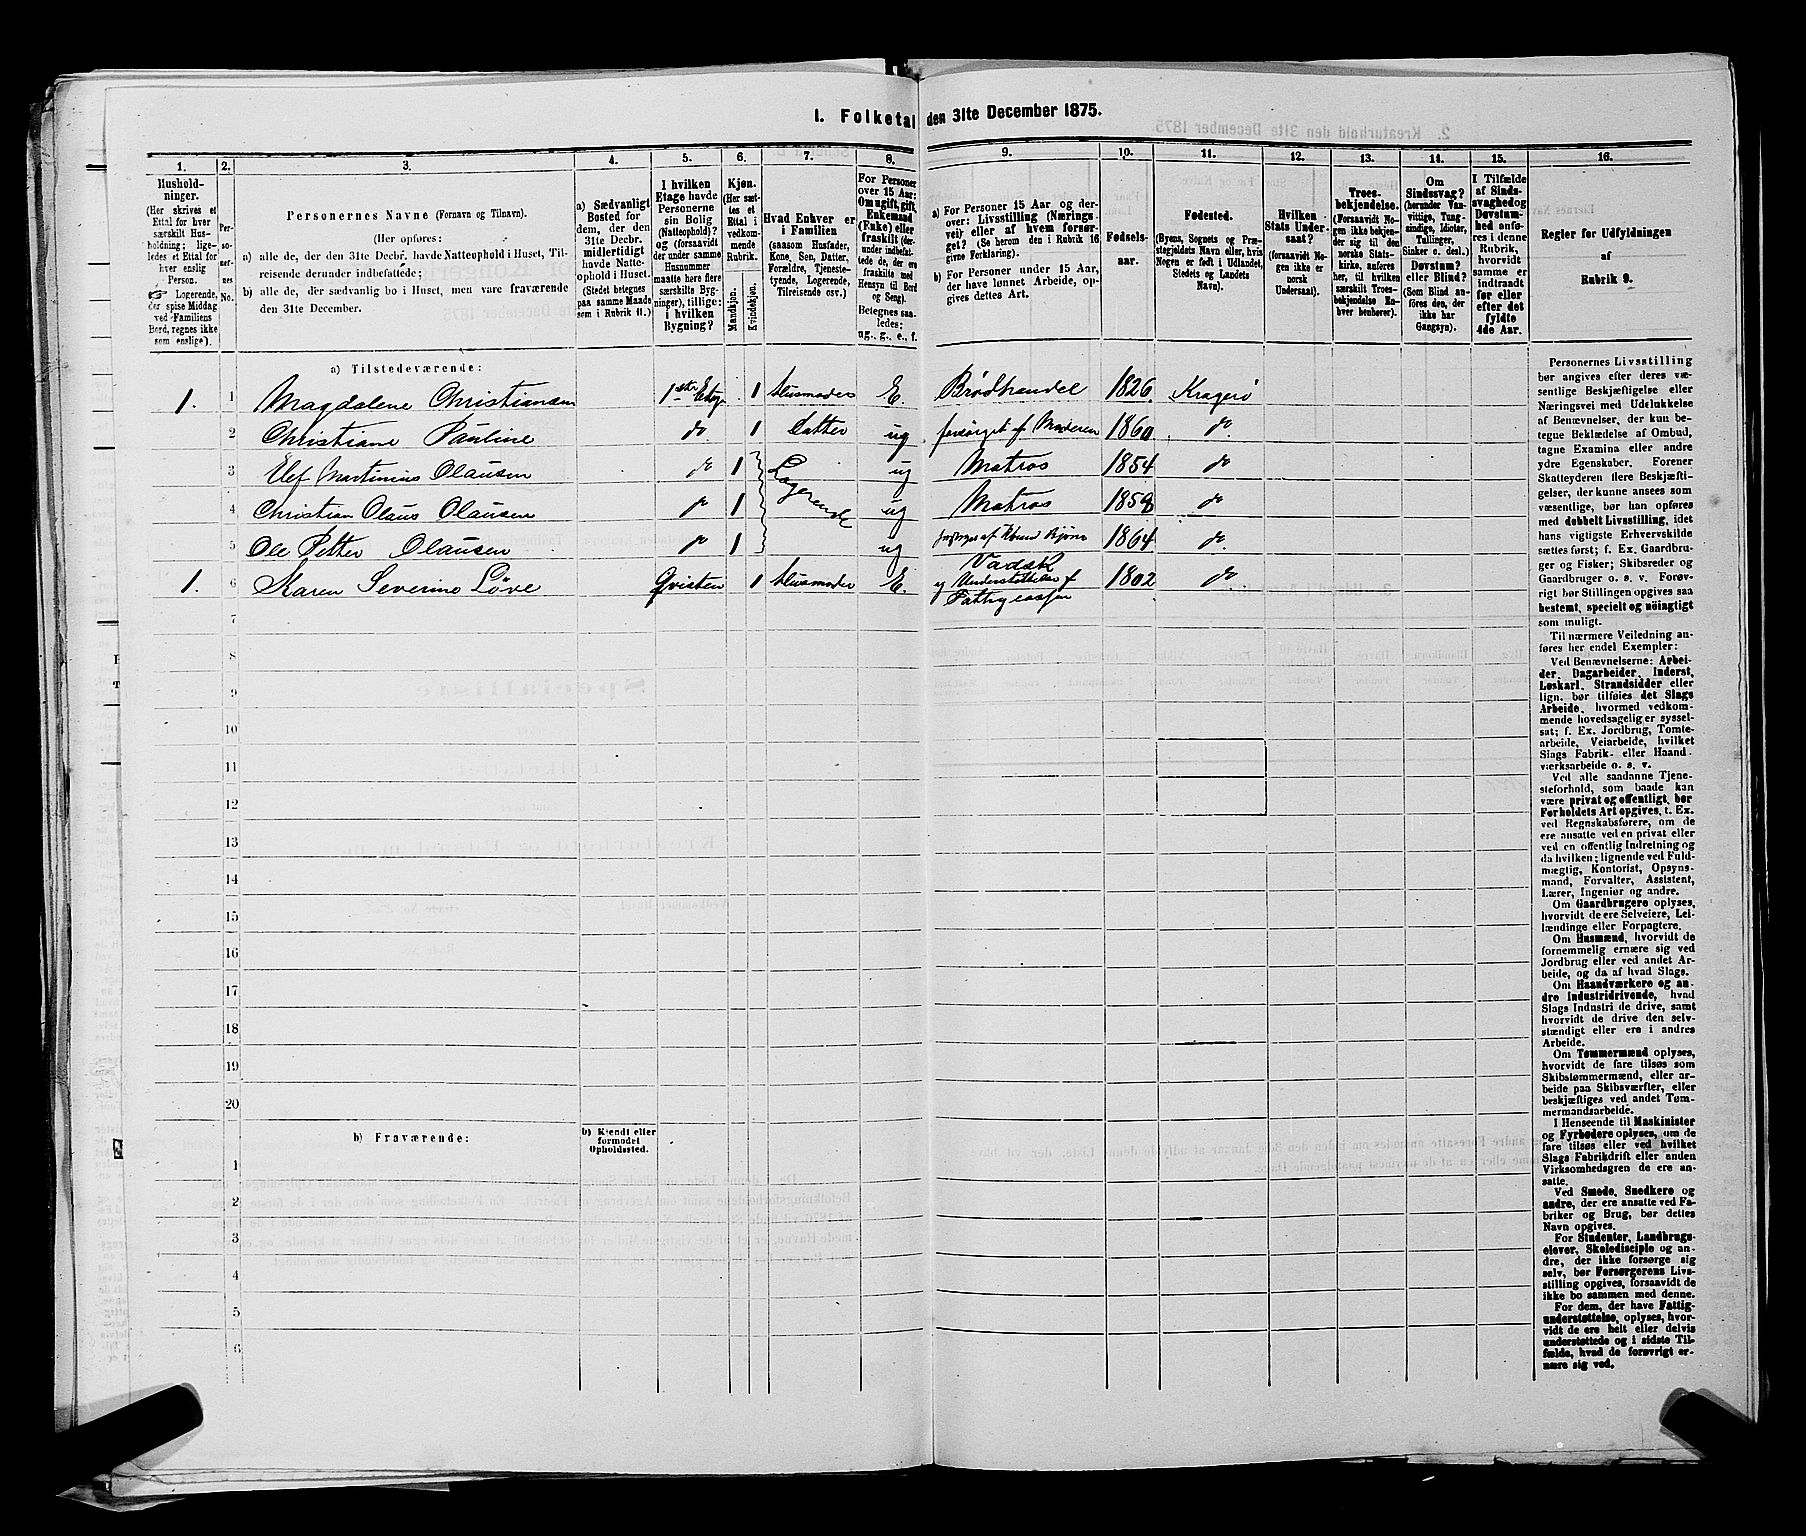 1. Folketal den 31te December 1875.
1. 2. 3. 4. 5. 6. 7. 8. 9. 10. 11. 12. 13. 14. 15. 16.
Hushold-
ninger.
(Her skrives et
Ettal for hver
særskilt Hus-
holdning; lige-
ledes et Ettal for
hver enslig
Person.
☞ Logerende,
der spise Middag
ved Familiens
Bord, regnes ikke
som enslige).
Per-
so-
ner-
nes
No.
Personernes Navne (Fornavn og Tilnavn).
(Her opføres:
a) alle de, der den 31te Decbr. havde Natteophold i Huset, Til-
reisende derunder indbefattede;
b) alle de, der sædvanlig bo i Huset, men vare fraværende
den 31te December.
a) Sædvanligt
Bosted for
dem, der den
31te Decbr.
midlertidigt
havde Natte-
ophold i Huset.
(Stedet betegnes
paa samme Maade
som i Rubrik 11.)
I hvilken
Etage havde
Personerne
sin Bolig
(Natteophold)?
og (forsaavidt
der under samme
Husnummer
maatte høre flere
særskilte Byg-
ninger), tillige:
i hvilken
Bygning?
Kjøn.
(Her sæt-
tes et
Ettal i
vedkom-
mende
Rubrik.
Mandkjøn.
Kvindekjøn.
Hvad Enhver er
i Familien
(saasom Husfader,
Kone, Søn, Datter,
Forældre, Tjeneste-
tyende, Logerende,
Tilreisende osv.)
For Personer
over 15 Aar:
Om ugift, gift,
Enkemand
(Enke) eller
fraskilt (der-
under indbefat-
tede de, der ere
fraskilte med
Hensyn til Bord
og Seng).
Betegnes saa-
ledes:
ug., g., e., f.
a) For Personer 15 Aar og der-
over: Livsstilling (Nærings-
vei) eller af hvem forsør-
get? (Se herom den i Rubrik 16
givne Forklaring).
b) For Personer under 15 Aar,
der have lønnet Arbeide, op-
gives dettes Art.
Fødsels-
aar.
Fødested.
(Byens, Sognets og Præ-
stegjeldets Navn eller, hvis
Nogen er født i Udlandet,
Stedets og Landets
Navn).
Hvilken
Stats Under-
saat?
(forsaavidt No-
gen ikke er
norsk
Undersaat).
Troes-
bekjendelse.
(Forsaavidt No-
gen ikke bekjen-
der sig til den
norske Stats-
kirke, anføres
her, til hvilken
særskilt Troes-
bekjendelse En-
hver henhører).
Om
Sindssvag?
(herunder Van-
vittige, Tung-
sindige, Idioter,
Tullinger,
Sinker o. desl.)
Døvstum?
eller Blind?
(Som Blind an-
føres den, der
ikke har
Gangsyn).
I Tilfælde
af Sinds-
svaghed og
Døvstum-
hed anfø-
res i denne
Rubrik,
hvorvidt
samme er
indtraadt
før eller
efter det
fyldte
4de Aar.
Regler for Udfyldningen
af
Rubrik 9.
a) Tilstedeværende:
1. 1 Magdalene Christiansen 1ste Etage 1 Husmoder E. Brødhandel 1826. Kragerø
2 Christiane Pauline do 1 Datter ug forsørget af Moderen 1860 do
3 Elef Martinius Olausen do 1 Logerende ug Matros 1854 do
4 Christian Olaus Olausen do 1 ug Matros 1858 do
5 Ole Petter Olausen do 1 ug 1864 do
1. 6 Maren Severine Løve Qvisten 1 Husmoder E. Vadsk og Understøttelse af 1802 do
7
8
9
10
11
12
13
14
15
16
17
18
19
20
b) Fraværende:
b) Kjendt eller
formodet
Opholdssted.
1
2
3
4
5
6
Personernes Livsstilling
bør angives efter deres væ-
sentlige Beskjæftigelse eller
Næringsvei med Udelukkelse
af Benævnelser, der kun be-
tegne Beklædelse af Ombud,
tagne Examina eller andre
ydre Egenskaber. Forener
Skatteyderen flere Beskjæfti-
gelser, der kunne ansees som
væsentlige, bør han opføres
med dobbelt Livsstilling, idet
hans vigtigste Erhvervskilde
sættes først; f. Ex. Gaardbru-
ger og Fisker; Skibsreder og
Gaardbruger o. s. v. Forøv-
rigt bør Stillingen opgives saa
bestemt, specielt og nöiagtigt
som muligt.
Til nærmere Veiledning an-
føres her endel Exempler:
Ved Benævnelserne: Arbei-
der, Dagarbeider, Inderst,
Løskarl, Strandsidder eller
lign. bør tilføies det Slags
Arbeide, hvormed vedkom-
mende hovedsagelig er syssel-
sat; f. Ex. Jordbrug, Tomte-
arbeide, Veiarbeide, hvilket
Slags Fabrik- eller Haand-
værksarbeide o. s. v.
Ved alle saadanne Tjene-
steforhold, som baade kan
være privat og offentligt, bør
Forholdets Art opgives, t. Ex.
ved Regnskabsførere, om de
ere ansatte ved en privat eller
ved en offentlig Indretning og
da hvilken; lignende ved Fuld-
mægtig, Kontorist, Opsyns-
mand, Forvalter, Assistent,
Lærer, Ingeniør og andre.
Om Gaardbrugere oplyses,
hvorvidt de ere Selveiere, Lei-
lændinge eller Forpagtere.
Om Husmænd, hvorvidt de
fornemmelig ernære sig ved
Jordbrug eller ved andet Ar-
beide, og da af hvad Slags.
Om Haandværkere og an-
dre Industridrivende, hvad
Slags Industri de drive, samt
hvorvidt de drive den selv-
stændigt eller ere i andres
Arbeide.
Om Tømmermænd oplyses,
hvorvidt de fare tilsøs som
Skibstømmermænd, eller ar-
beide paa Skibsværfter, eller
beskjæftiges ved andet Tøm-
mermandsarbeide.
I Henseende til Maskinister
og Fyrbødere oplyses, om de
fare tilsøs eller ved hvilket
Slags Fabrikdrift eller anden
Virksomhedsgren de ere an-
satte.
Ved Smede, Snedkere og
andre, der ere ansatte ved Fa-
briker og Brug, bør dettes
Navn opgives.
For Studenter, Landbrugs-
elever, Skoledisciple og an-
dre, der ikke forsørge sig
selv, bør Forsørgerens Livs-
stilling opgives, forsaavidt de
ikke bo sammen med denne.
For dem, der have Fattig-
understøttelse, oplyses, hvor-
vidt de ere helt eller delvis
understøttede og i sidste Til-
fælde, hvad de forøvrigt er-
nære sig ved.